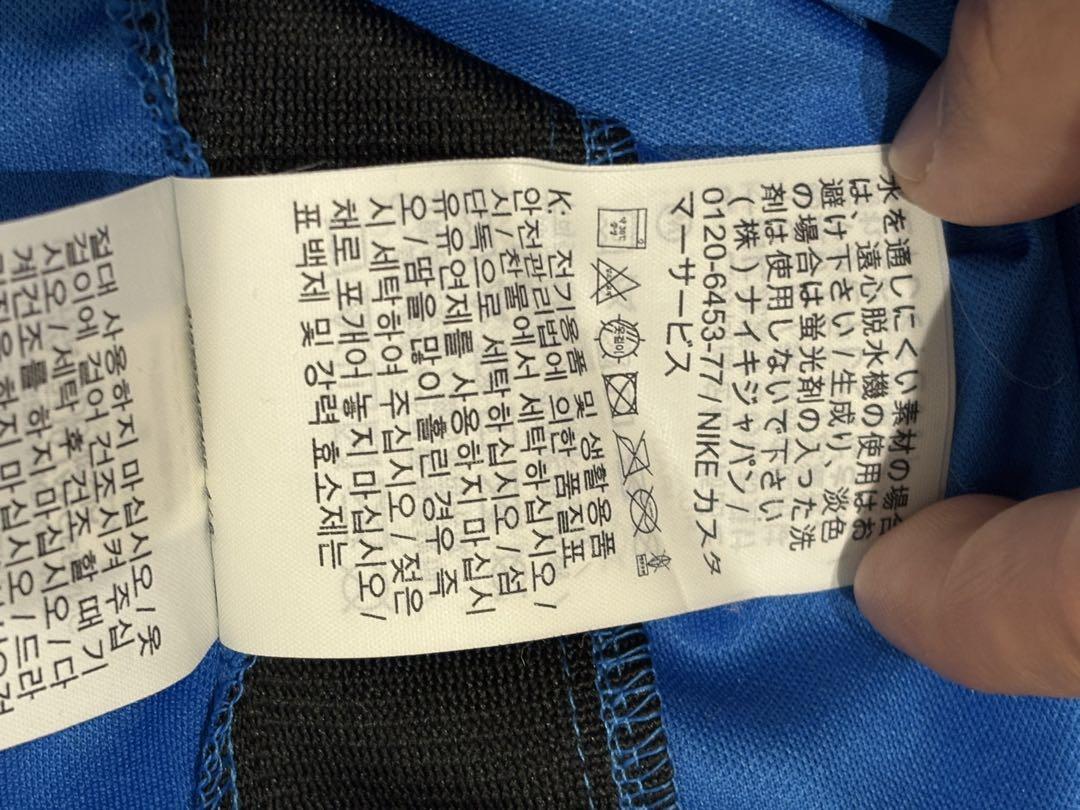 水を通しにくい素材の場合
は、遠心脱水機の使用はお
避け下さい / 生成り、淡色
の場合は蛍光剤の入った洗
剤は使用しないで下さい
(株)ナイキジャパン /
0120-6453-77 / NIKE カスタ
マーサービス
K: 전기용품 및 생활용품
안전관리법에 의한 품질표
시 / 찬물에서 세탁하십시오 /
단독으로 세탁하십시오 / 섬
유유연제를 사용하지 마십시
오 / 땀을 많이 흘린 경우 즉
시 세탁하여 주십시오 / 젖은
채로 포개어 놓지 마십시오 /
표백제 및 강력 효소제는
절대 사용하지 마십시오 / 옷
걸이에 걸어 건조시켜 주십
시오 / 세탁 후 건조 할 때 기
계건조를 하지 마십시오 / 다
하지 마십시오 / 드라